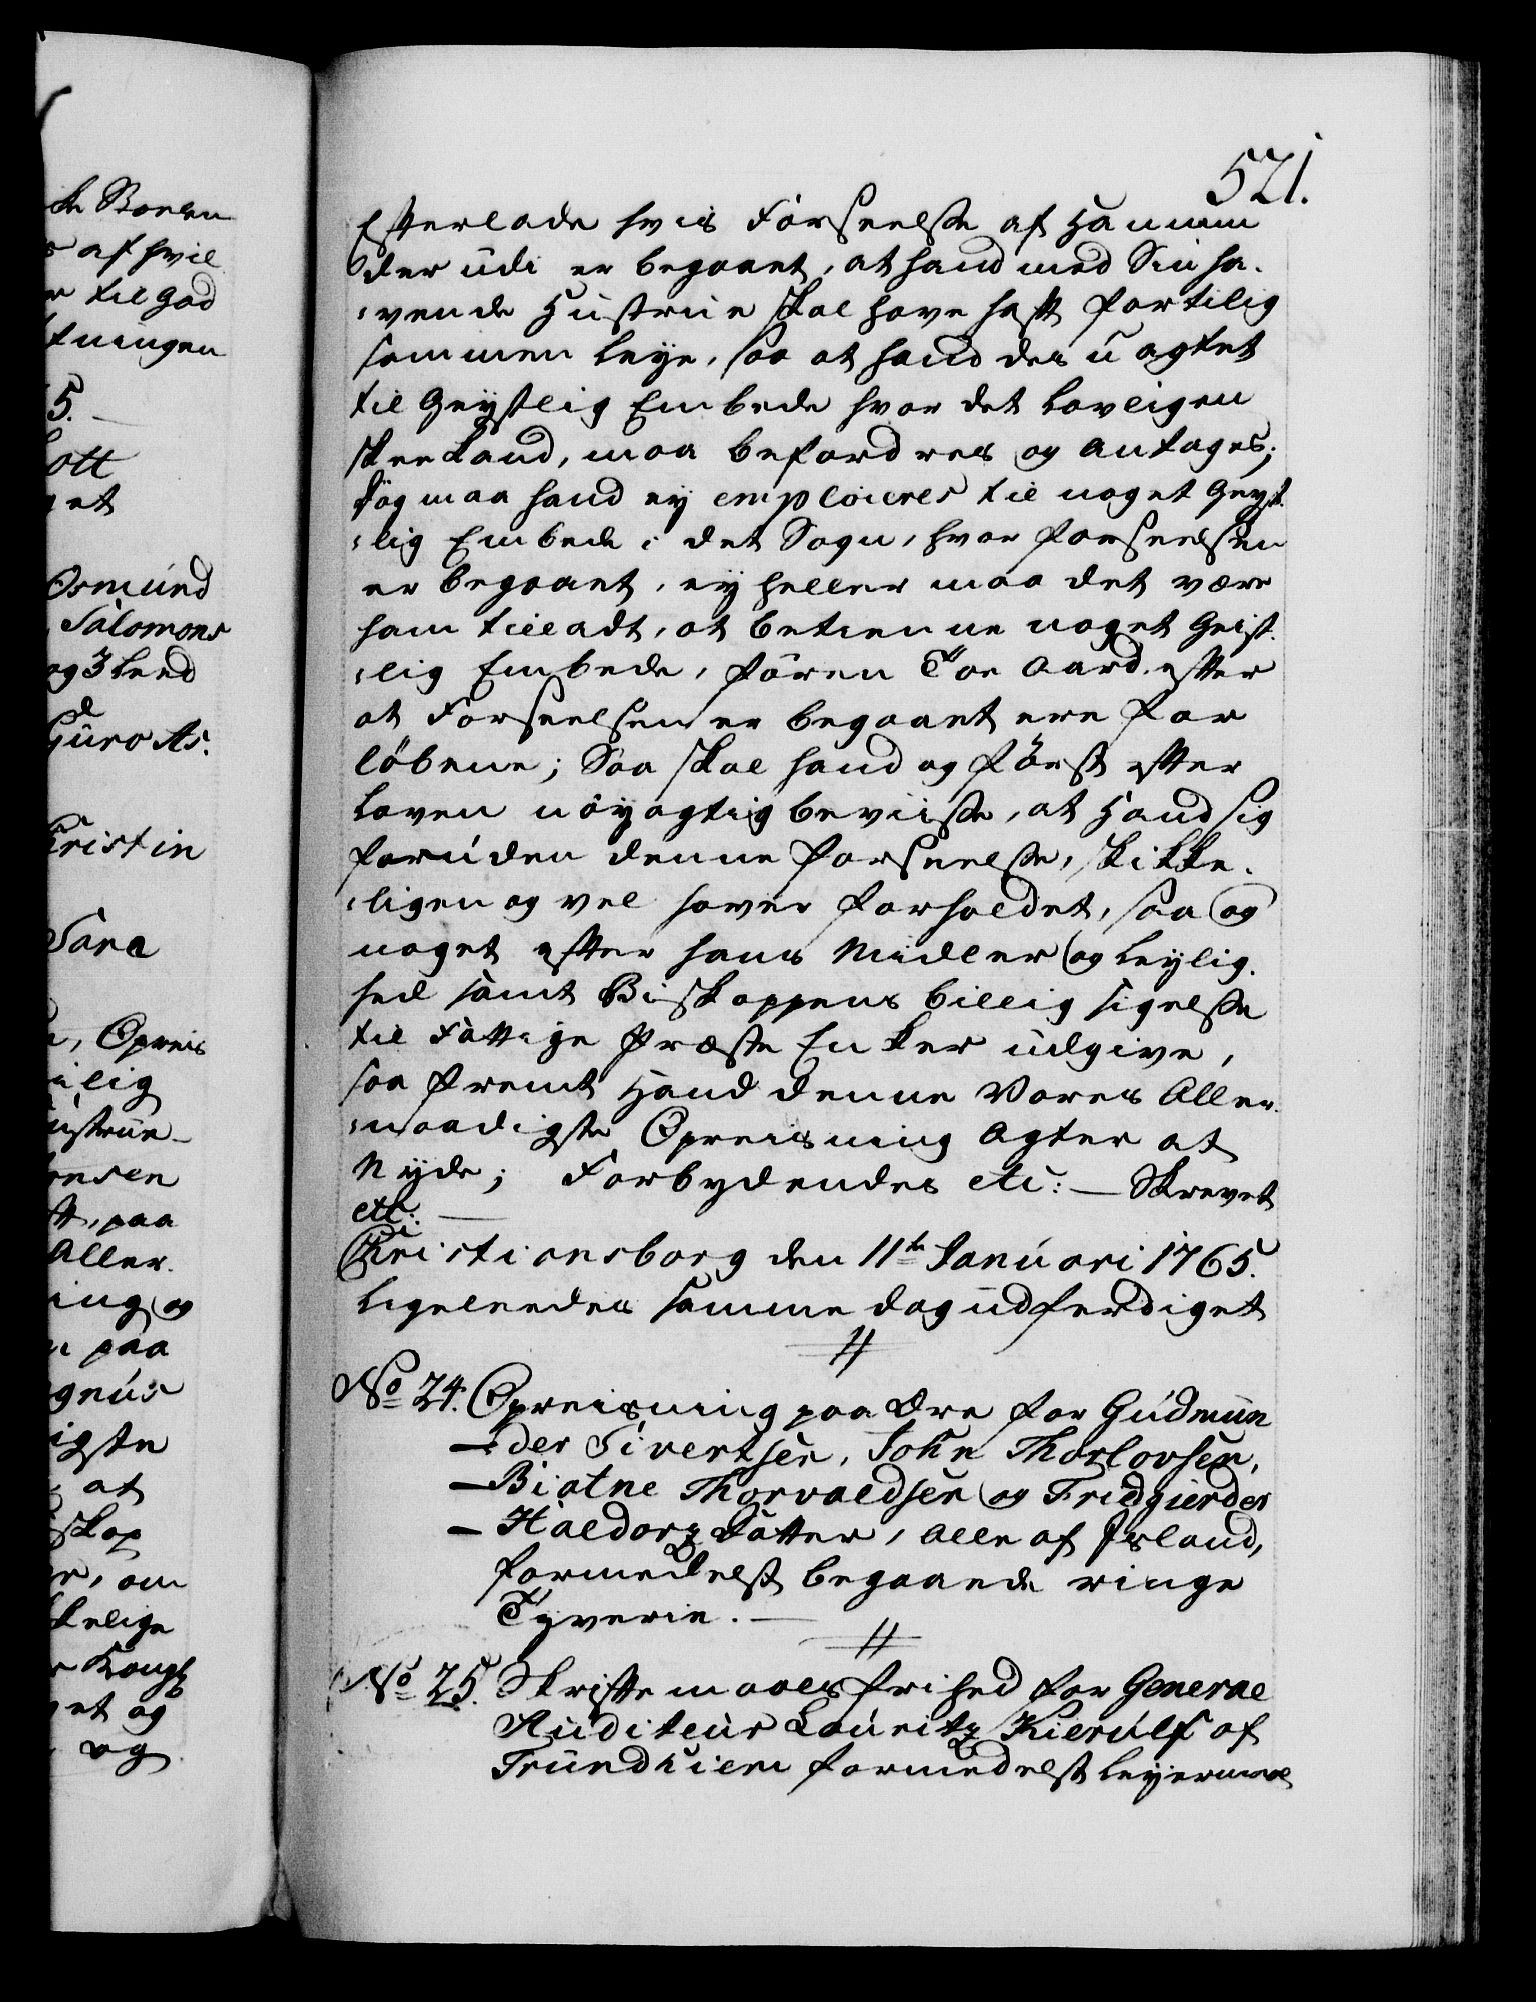 521.
Efterlade hvis Forseelse af Hannem
der udi er begaaet, at hand med Sin ha-
vende Hustrue skal have haft for tilig
sammen leye, saa at hand des uagtet
til Geystlig Embede hvor det lovligen
skee kand, maa befordres og Antages;
dog maa hand ey emploieres til noget Geyst-
lig Embede i det Sogn, hvor forseelsen
er begaaet, ey heller maa det være
ham tilladt, at betienne noget Geist-
lig Embede, fören Toe Aard efter
at Forseelsen er begaaet ere for
löbene; Saa skal hand og först efter
Loven nöyagtig beviise, at Hand sig
foruden denne forseelse, skikke-
ligen og vel haver forholdet, saa og
noget efter hans Midler og Leylig-
hed samt Biskoppens billig sigelse
til Fattige Præste Enker udgive,
saa fremt Hand denne Vores Aller-
naadigste Opreisning Agter at
Nyde; Forbydendes etc: — Skrevet
etc: —
Christiansborg den 11te Januari 1765.
Ligeleedes samme dag udferdiget
No 24. Opreisning paa Ære for Gudmun
der Sivertsen, John Thorlovsen,
Biatne Thorvaldsen og Fridgierder
Haldorz Datter, Alle af Island,
formedelst begaaede ringe
Tyverie. —
No 25. Skriftemaals frihed for General
Auditeur Lauritz Kierulf af
Trundhiem formedelst Leyermaal
ke Boelen
s af hvil
r til God
tningen
5. —
ott
et
Osmund
Salomons
og 3 Leed
Guro As.
Kristin
Sara
, Opreis
ilig
ustrue
onsen
tt, paa
Aller
ing og
paa
gnus
igste
at
skop
r, om
kelige
r Kongl
et og
og